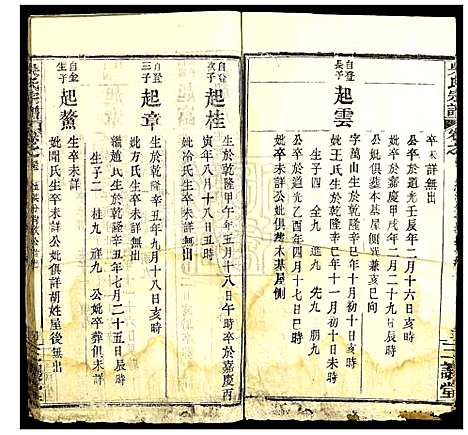 卒未詳無出
公卒於道光壬辰年二月十六日亥時
妣卒於嘉慶甲戌年二月二十日辰時
公妣俱塟本基屋側巽兼亥巳向
自登長子
起雲
字萬山生於乾隆辛巳年十一月初十日亥時
妣王氏生於乾隆辛巳年十月初十日未時
生子四 全九 進九 先九 朋九
公卒於道光乙酉年四月十七日戌時
公妣俱塟本基屋側
自登次子
起桂
生於乾隆甲午年五月十八日午時卒於嘉慶丙
寅年八月十八日戌時
妣冷氏生卒未詳無出
自登三子
起章
生於乾隆辛丑年九月十八日亥時
妣方氏生卒未詳
繼趙氏生於乾隆辛丑年七月二十五日辰時
生子二 桂九 祥九 公妣卒葬俱未詳
自登生子
起鰲
妣閔氏生卒未詳公妣俱詳胡姓屋後無出
吳氏宗譜
三讓堂